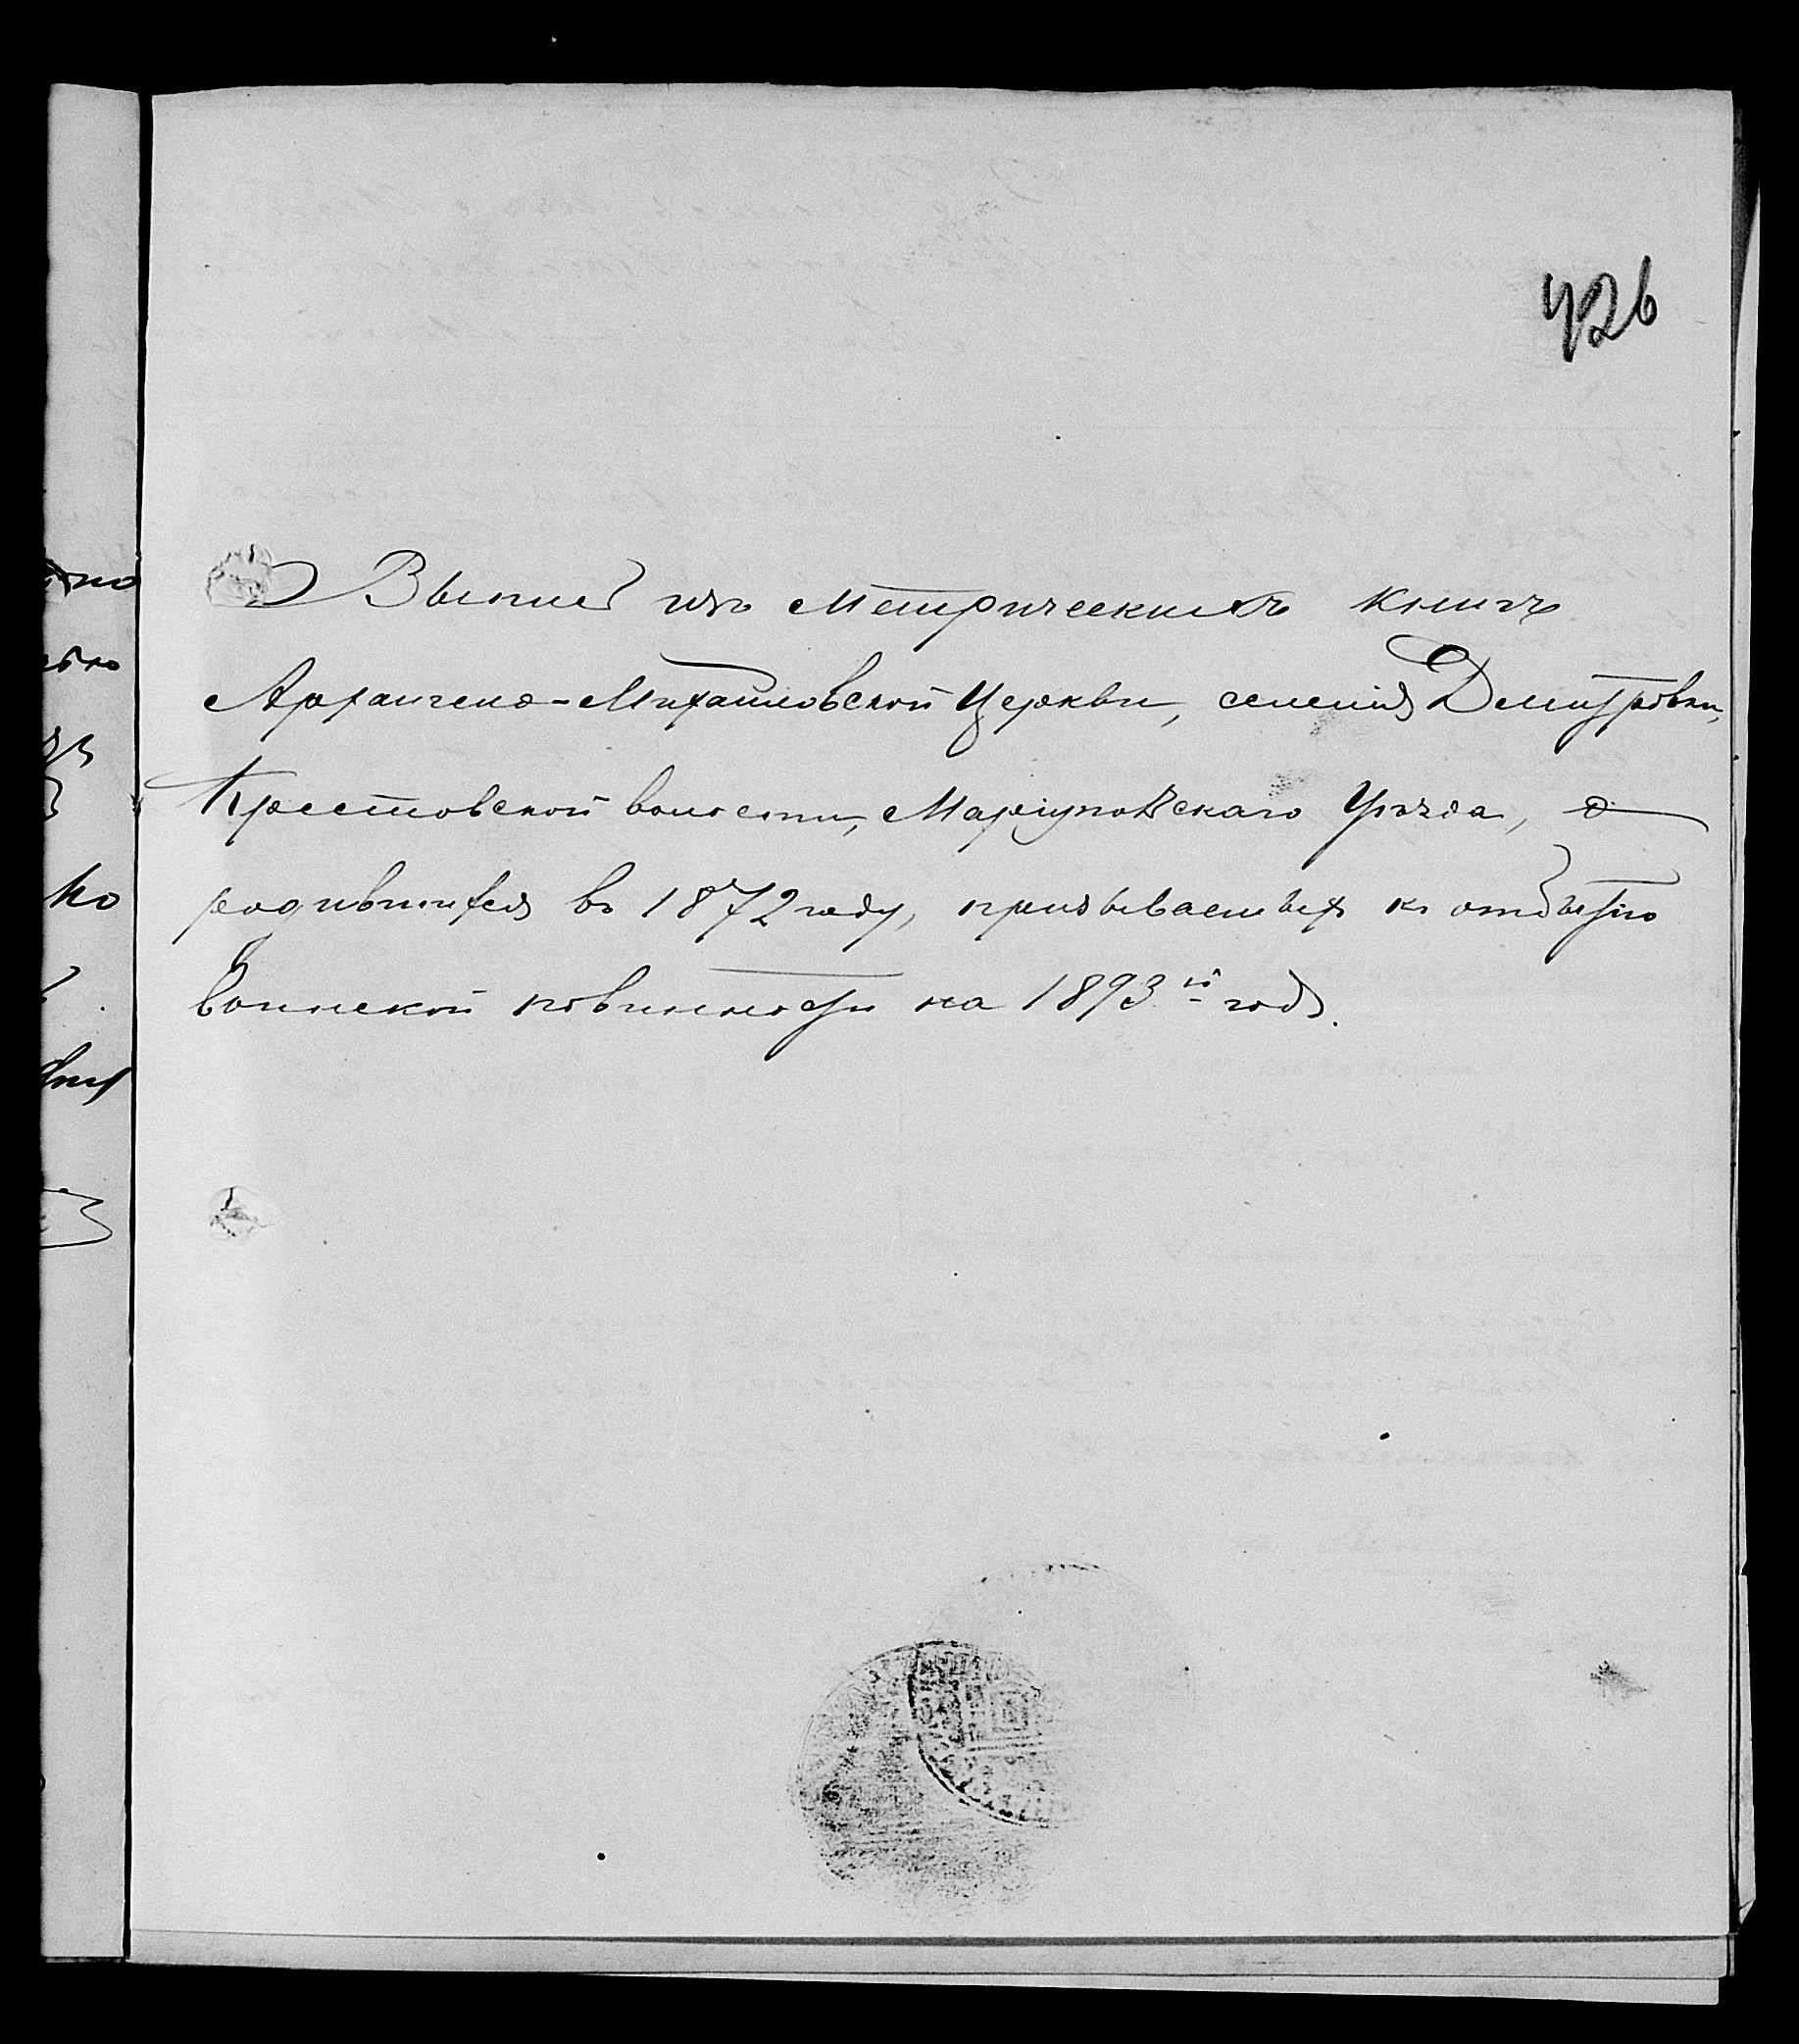 426
Выпись изъ Метрическихъ книгъ
Архангело-Михайловской Церкви, селенія Дмитровки,
Крестовской волости, Маріупольскаго Уѣзда, о
родившихся въ 1872 году, призываемыхъ къ отбытію
воинской повинности на 1893й годъ.
но